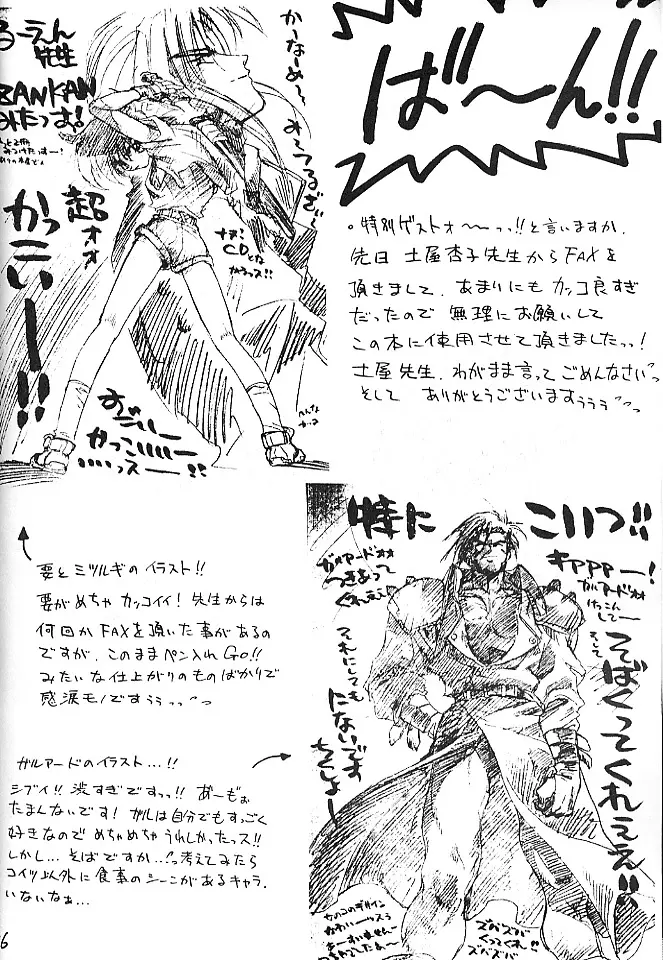 ば〜ん!!
。特別ゲストォ〜ーっっ!!と言いますか、
先日 土屋杏子先生からFAXを
頂きまして、あまりにも カッコ良すぎ
だったので 無理にお願いして
この本に使用させて頂きましたっっ!
土屋先生、わがまま言って ごめんなさいっ
そして ありがとうございますぅぅぅ
るーえん
先生
ZANKAN
みたっす!
超ォオ
かっこいー!!
かーなーめ〜
みーつるぎぃ〜
すごいー
かっこいいいー
いいっスー!!
要とミツルギの イラスト!!
要がめちゃ カッコイイ! 先生からは
何回か FAXを頂いた事があるの
ですが、このまま ペン入れ GO!!
みたいな仕上がりのものばかりで
感涙モノですぅぅっっ
特に こいつ!!
ガルアードォォ
つきあって
くれぇぇ
キャアアアー!
ガルアードォォ
けっこん
してー
そして
そばくってくれぇぇ!!
それにしても
にないです
ちくしょー
ガルアードの イラスト...!!
シブイ!! 渋すぎですっっ!! あーもぉ
たまんないです! ガルは自分でもすっごく
好きなので めちゃめちゃ うれしかったっス!!
しかし... そばですか...っ 考えてみたら
コイツ以外に食事のシーンがあるキャラ、
いないなぁ...
女のコのデザイン
かわいーっスぅ
ズバズバ
くってくれ!!
ズバズバ
6